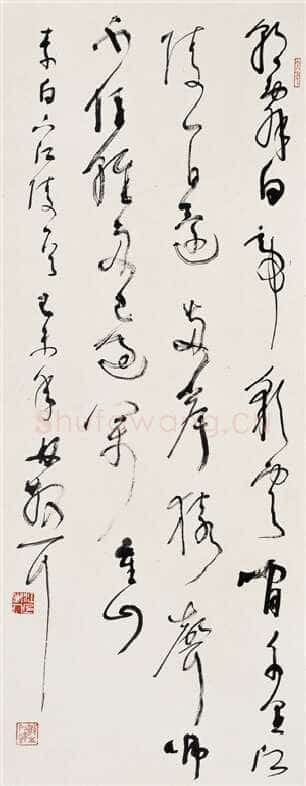 朝辭白帝彩雲間千里江
陵一日還兩岸猿聲啼
不住輕舟已過萬重山
李白下江陵 己未 林散耳
shufawang.cn